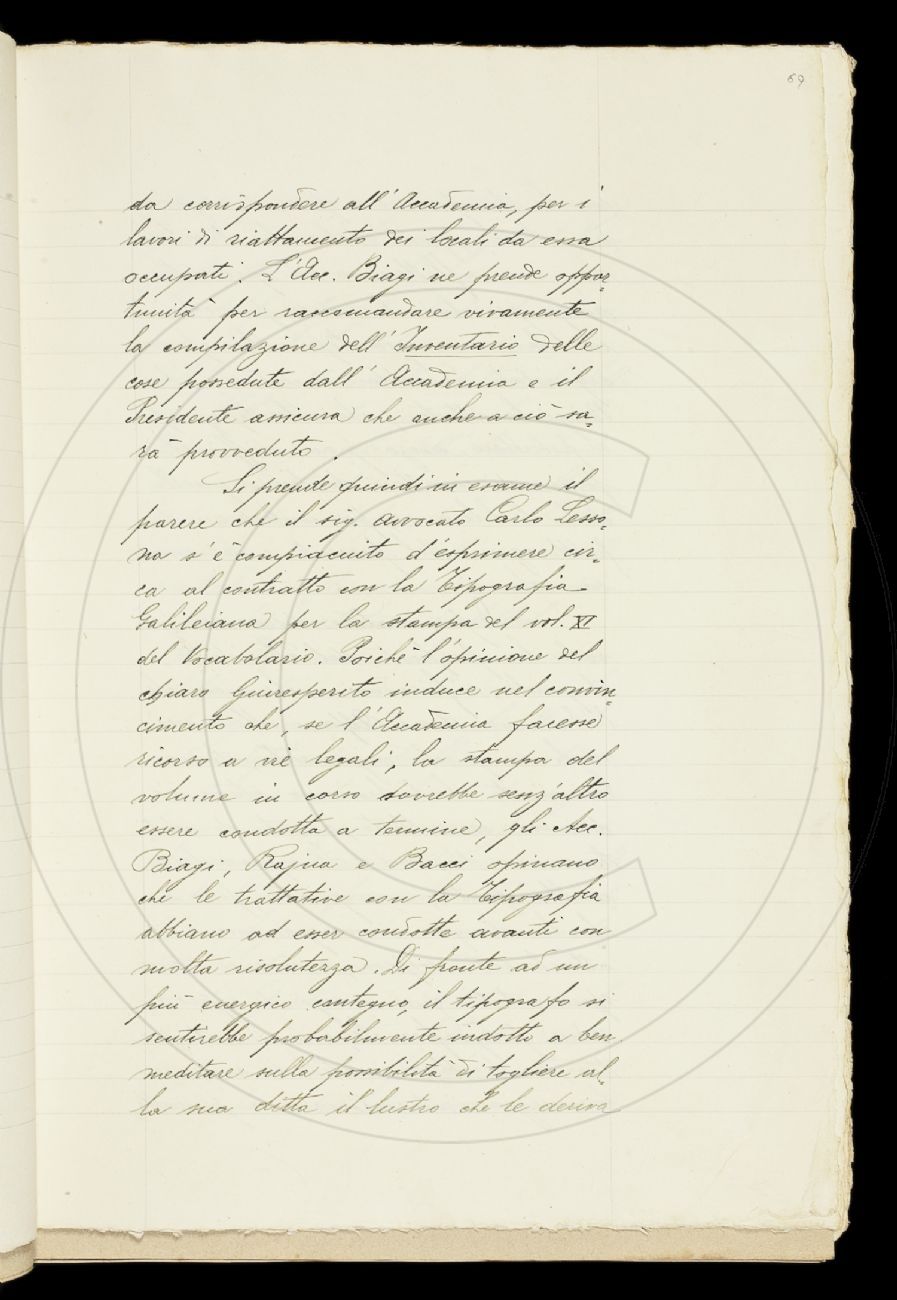 69
da corrispondere all'Accademia, per i
lavori di riattamento dei locali da essa
occupati. L'Acc. Biagi ne prende oppor=
tunità per raccomandare vivamente
la compilazione dell'Inventario delle
cose possedute dall'Accademia e il
Presidente assicura che anche a ciò sa=
rà provveduto.
Si prende quindi in esame il
parere che il sig. avvocato Carlo Lesso=
na s'è compiaciuto d'esprimere cir=
ca al contratto con la Tipografia
Galileiana per la stampa del vol. XI
del Vocabolario. Poichè l'opinione del
chiaro Giureperito induce nel convin=
cimento che, se l'Accademia facesse
ricorso a vie legali, la stampa del
volume in corso dovrebbe senz'altro
essere condotta a termine, gli Acc.
Biagi, Rajna e Bacci opinano
che le trattative con la Tipografia
abbiano ad esser condotte avanti con
molta risolutezza. Di fronte ad un
più energico contegno, il tipografo si
sentirebbe probabilmente indotto a ben
meditare sulla possibilità di togliere al=
la sua ditta il lustro che le deriva